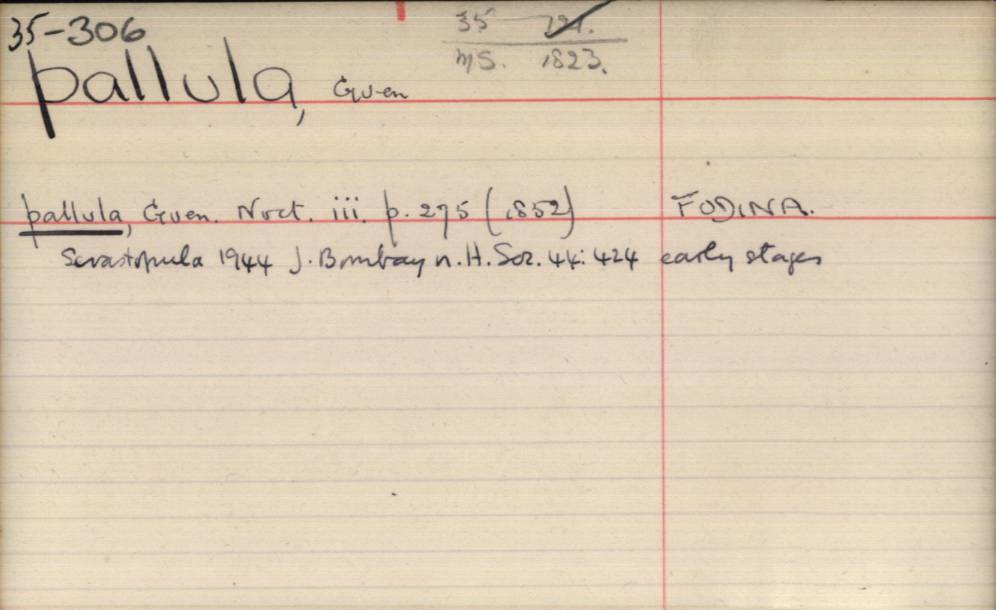 35-306
35 121.
MS. 1823.
pallula, Guen
pallula, Guen. Noct. iii. p. 275 (1852) FODINA.
Sevastopula 1944 J. Bombay n. H. Soc. 44: 424 early stages